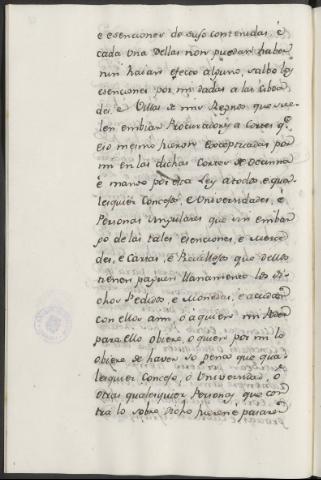 e esenciones de suso contenidas, é
cada una dellas non puedan haber
nin haian efecto alguno, salbo las
esenciones por mi dadas a las Cibda-
des, e Villas de mis Regnos que sue-
len embiar Procuradores a Cortes qe.
eso mesmo fueron exceptadas por
mi en las dichas Cortes de Ocanna
é mando por esta Ley a todos, e qua-
lesquier Concejos, e Universidades, é
Personas singulares que sin embar-
go de las tales esenciones, e merce-
des, e Cartas, e Previllejos que dellos
tienen paguen llanamente los di-
chos Pedidos, e Monedas, é acudan
con ellos a mi, ó á quien mi Poder
para ello obiere, o quien por mi lo
obiere de haver so pena que qua-
lesquier Concejo, o Universidad, ó
otras qualesquier Personas que con-
tra lo sobre dicho fueren e pasaren